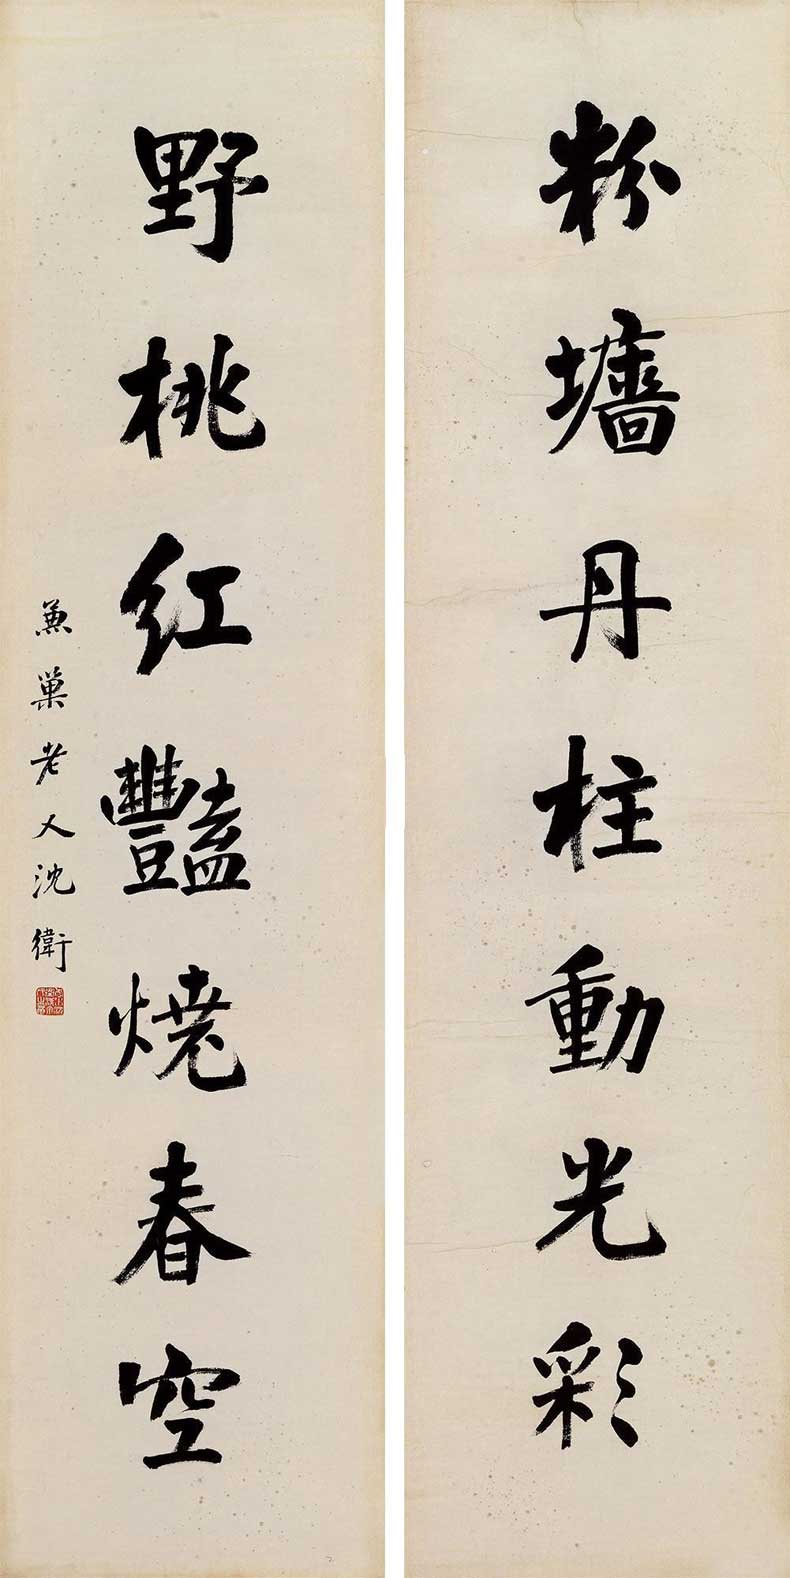 粉墻丹柱動光彩
野桃紅豔燒春空
兼巢老人沈衛